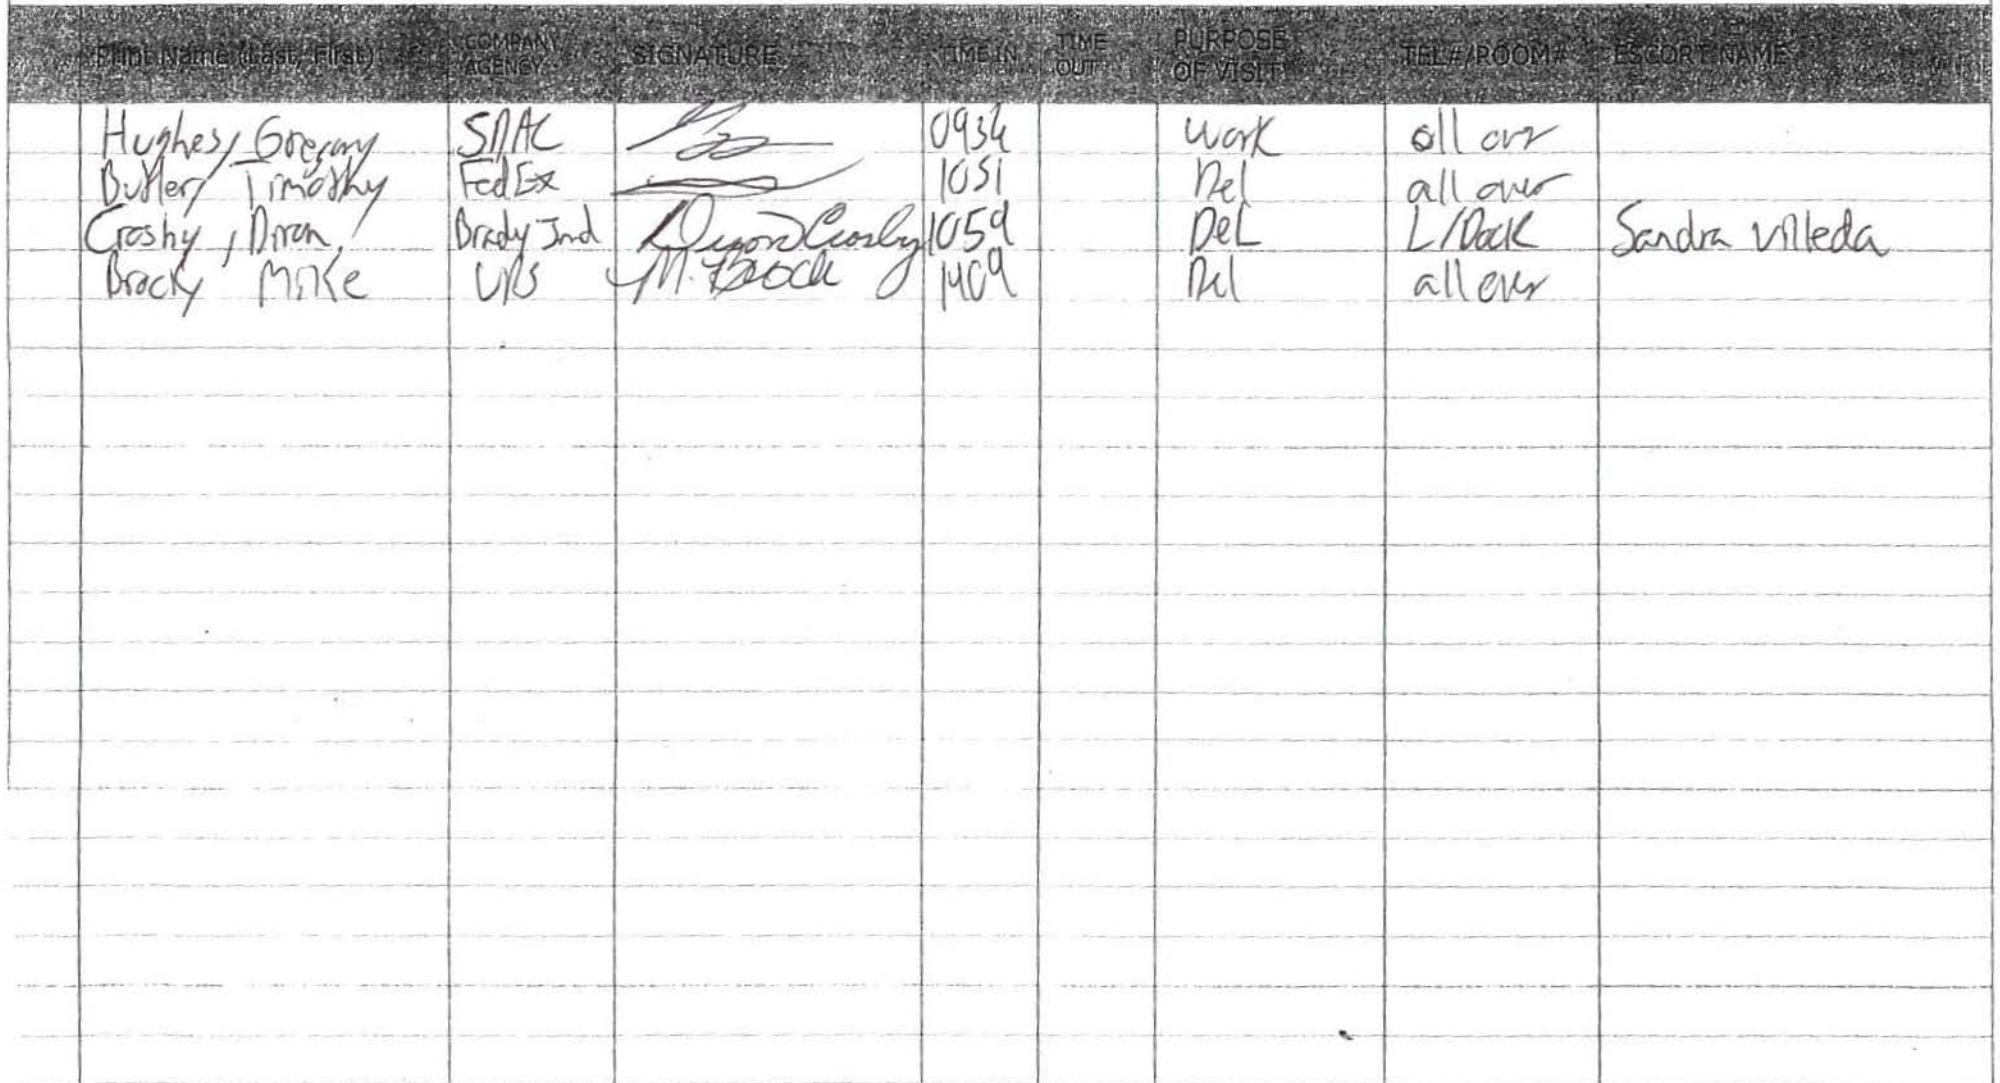 Print Name (Last, First) COMPANY/ AGENCY SIGNATURE TIME IN TIME OUT PURPOSE OF VISIT TEL#/ROOM# ESCORT NAME
Hughes, Gregory SNAC 0934 work all over
Butler, Timothy FedEx 1051 Del all over
Crosby, Brady Ind Crosby 1059 Del L/Dock Sandra Villeda
Brock, Mike UPS M. Brock 1409 Del all over